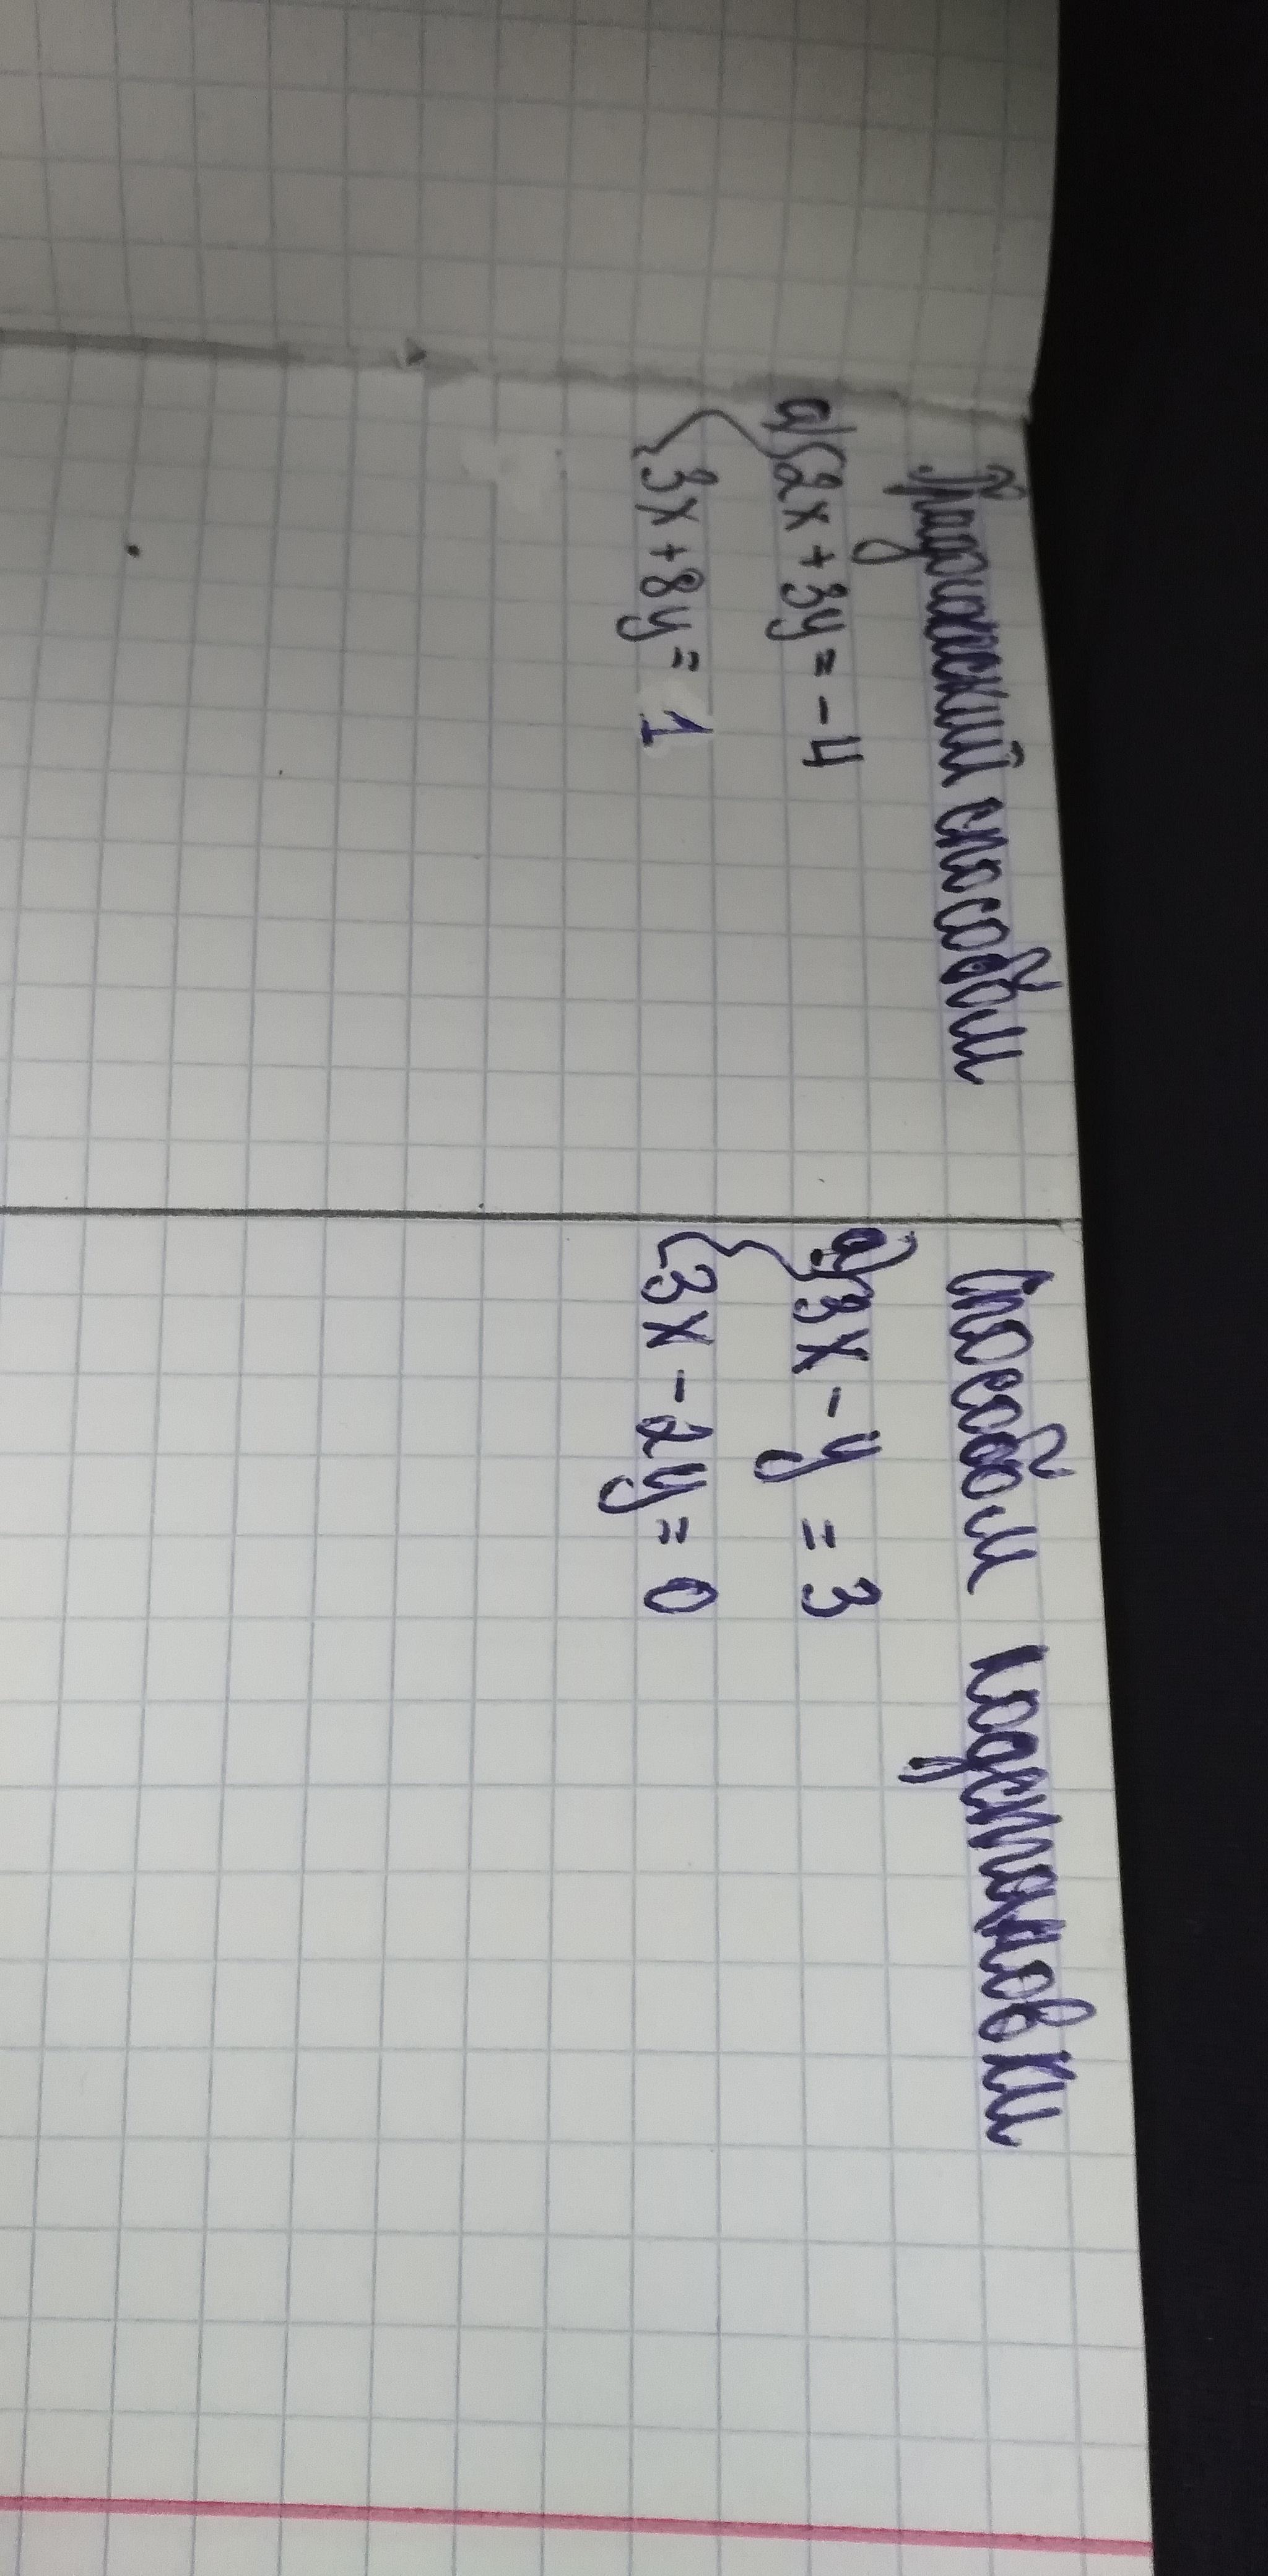 Графический способом
а) { 2x + 3y = -4
{ 3x + 8y = 1
Способом подстановки
а) { 3x - y = 3
{ 3x - 2y = 0